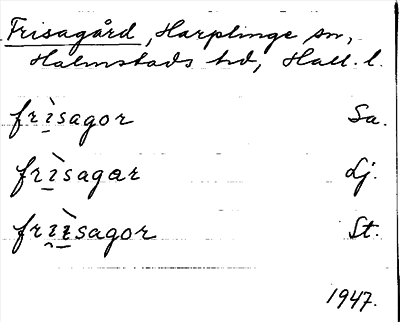 Frisagård, Harplinge sn,
Halmstads hd, Hall. l.
frìsagor Sa.
frìsagar Lj.
friìsagor St.
1947.